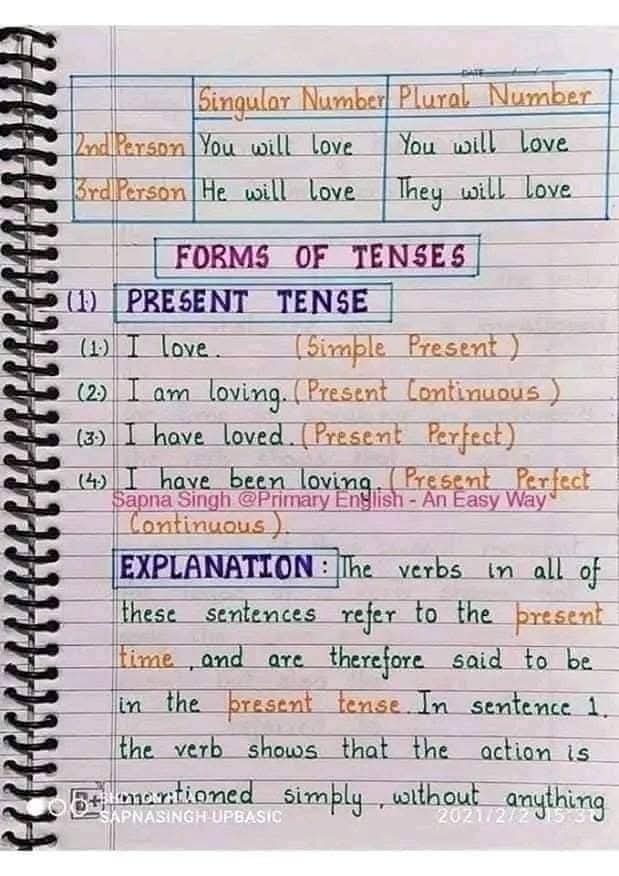 DATE
Singular Number Plural Number
2nd Person You will love You will love
3rd Person He will love They will love
FORMS OF TENSES
(1) PRESENT TENSE
(1.) I love. (Simple Present)
(2.) I am loving. (Present Continuous)
(3.) I have loved. (Present Perfect)
(4.) I have been loving. (Present Perfect
Sapna Singh @Primary English - An Easy Way
Continuous).
EXPLANATION : The verbs in all of
these sentences refer to the present
time, and are therefore said to be
in the present tense. In sentence 1.
the verb shows that the action is
mentioned simply, without anything
SAPNASINGH-UPBASIC